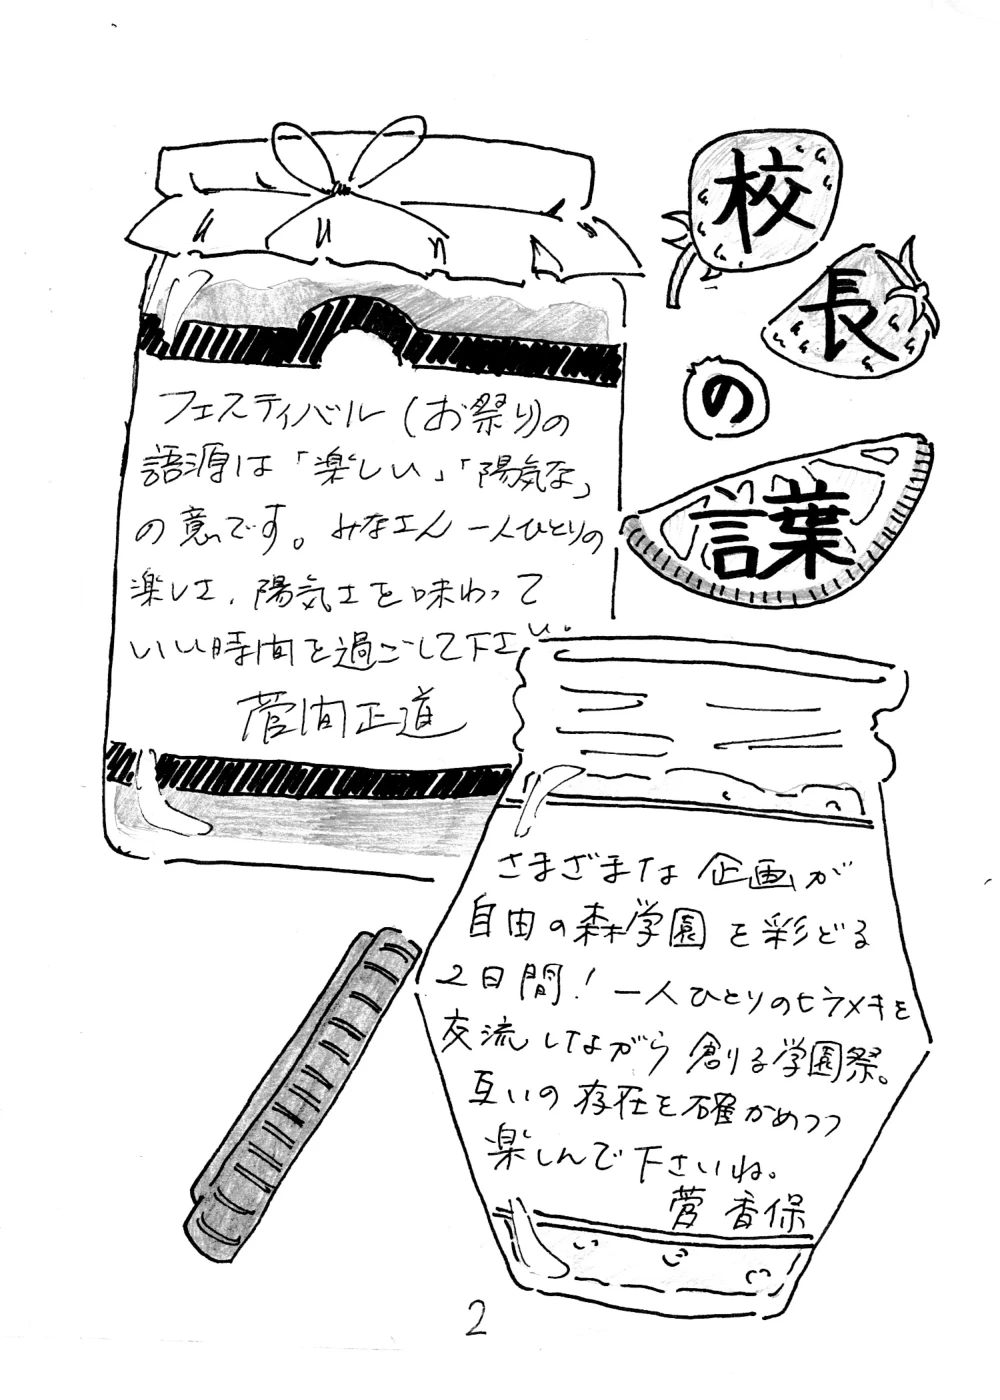 校
長
の
言葉
フェスティバル(お祭り)の
語源は「楽しい」「陽気な」
の意です。みなさん一人ひとりの
楽しさ、陽気さを味わって
いい時間を過ごして下さい。
菅間正道
さまざまな企画が
自由の森学園を彩どる
2日間!一人ひとりのヒラメキを
交流しながら創る学園祭。
互いの存在を確かめつつ
楽しんで下さいね。
菅香保
2